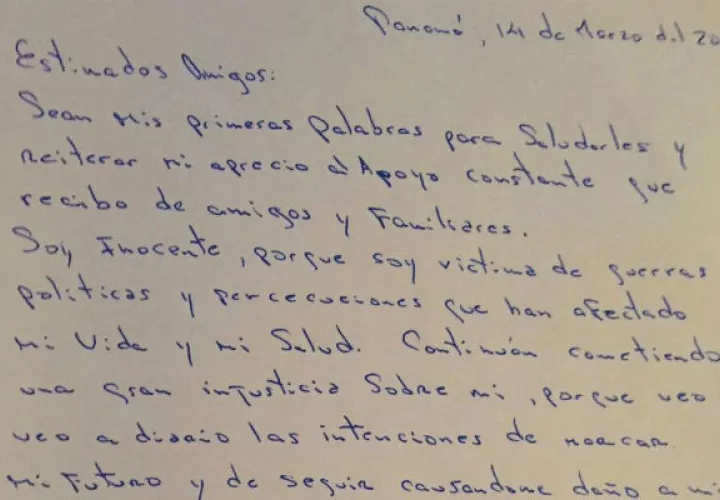 Panamá, 14 de Marzo del 20
Estimados Amigos:
Sean mis primeras palabras para Saludarles y
reiterar mi aprecio al Apoyo constante que
recibo de amigos y Familiares.
Soy Inocente, porque soy victima de guerras
politicas y percecuciones que han afectado
mi Vida y mi Salud. Continuan cometiendo
una gran injusticia Sobre mi, porque veo
veo a diario las intenciones de marcar
mi Futuro y de seguir causandome daño a mi